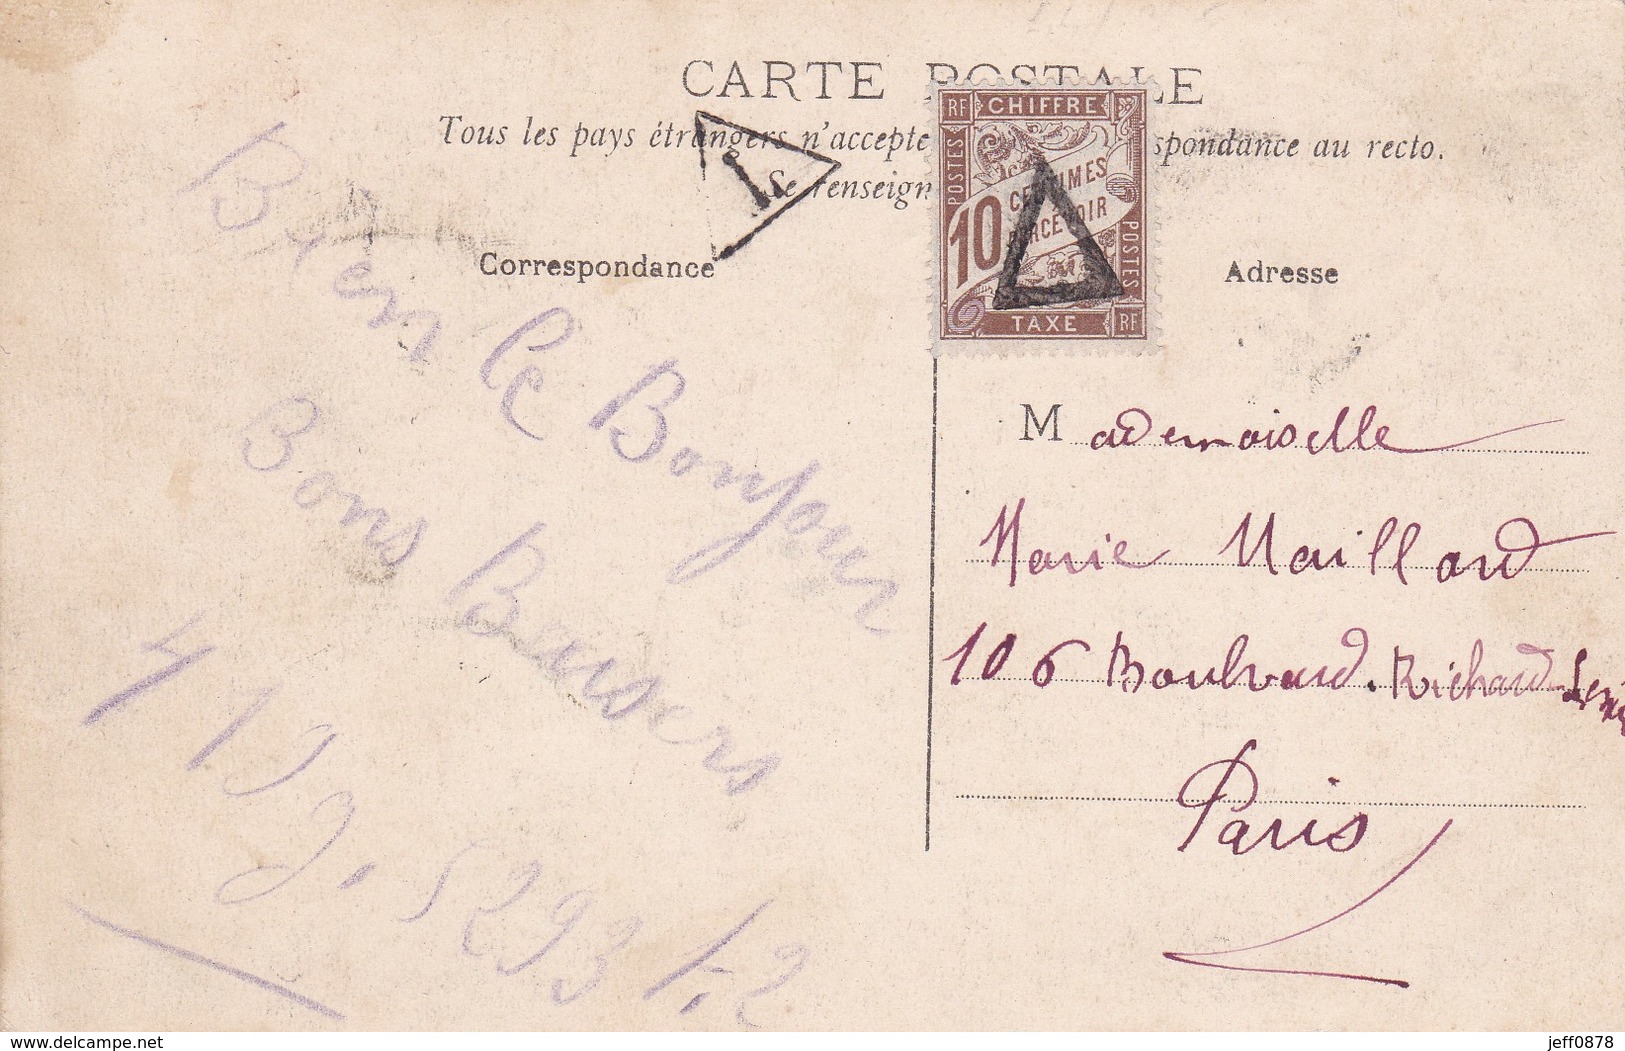 CARTE POSTALE
Tous les pays étrangers n'accepte spondance au recto.
Se renseign
RF CHIFFRE
POSTES
10 CENTIMES
PERCEVOIR
POSTES
TAXE RF
T
Correspondance
Adresse
Bien le Bonjour
Bons Baisers
Mademoiselle
Marie Maillard
106 Boulvard. Richard-Leno
Paris
5293
delcampe.net
jeff0878